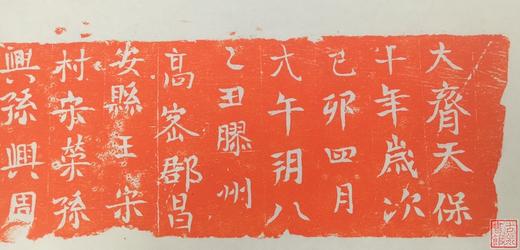 大齊天保
十年歲次
己卯四月
戊午朔八
乙丑膠州
高密郡昌
安縣王宋
村宋榮孫
興孫興周